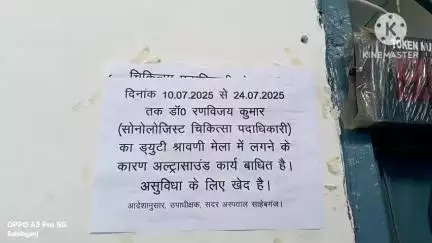 दिनांक 10.07.2025 से 24.07.2025
तक डॉ0 रणविजय कुमार
(सोनोलोजिस्ट चिकित्सा पदाधिकारी)
का ड्युटी श्रावणी मेला में लगने के
कारण अल्ट्रासाउंड कार्य बाधित है।
असुविधा के लिए खेद है।
आदेशानुसार, उपाधीक्षक, सदर अस्पताल साहेबगंज।
TOKEN NU
KINEMASTER
OPPO A3 Pro 5G
Sahibganj